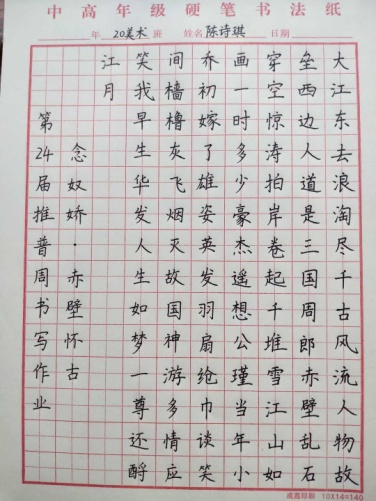 中高年级硬笔书法纸
年 20美术 班 姓名 陈诗琪 日期
大江东去浪淘尽千古风流人物故
垒西边人道是三国周郎赤壁乱石
穿空惊涛拍岸卷起千堆雪江山如
画一时多少豪杰遥想公瑾当年小
乔初嫁了雄姿英发羽扇纶巾谈笑
间樯橹灰飞烟灭故国神游多情应
笑我早生华发人生如梦一尊还酹
江月
念奴娇·赤壁怀古
第24届推普周书写作业
10X14=140